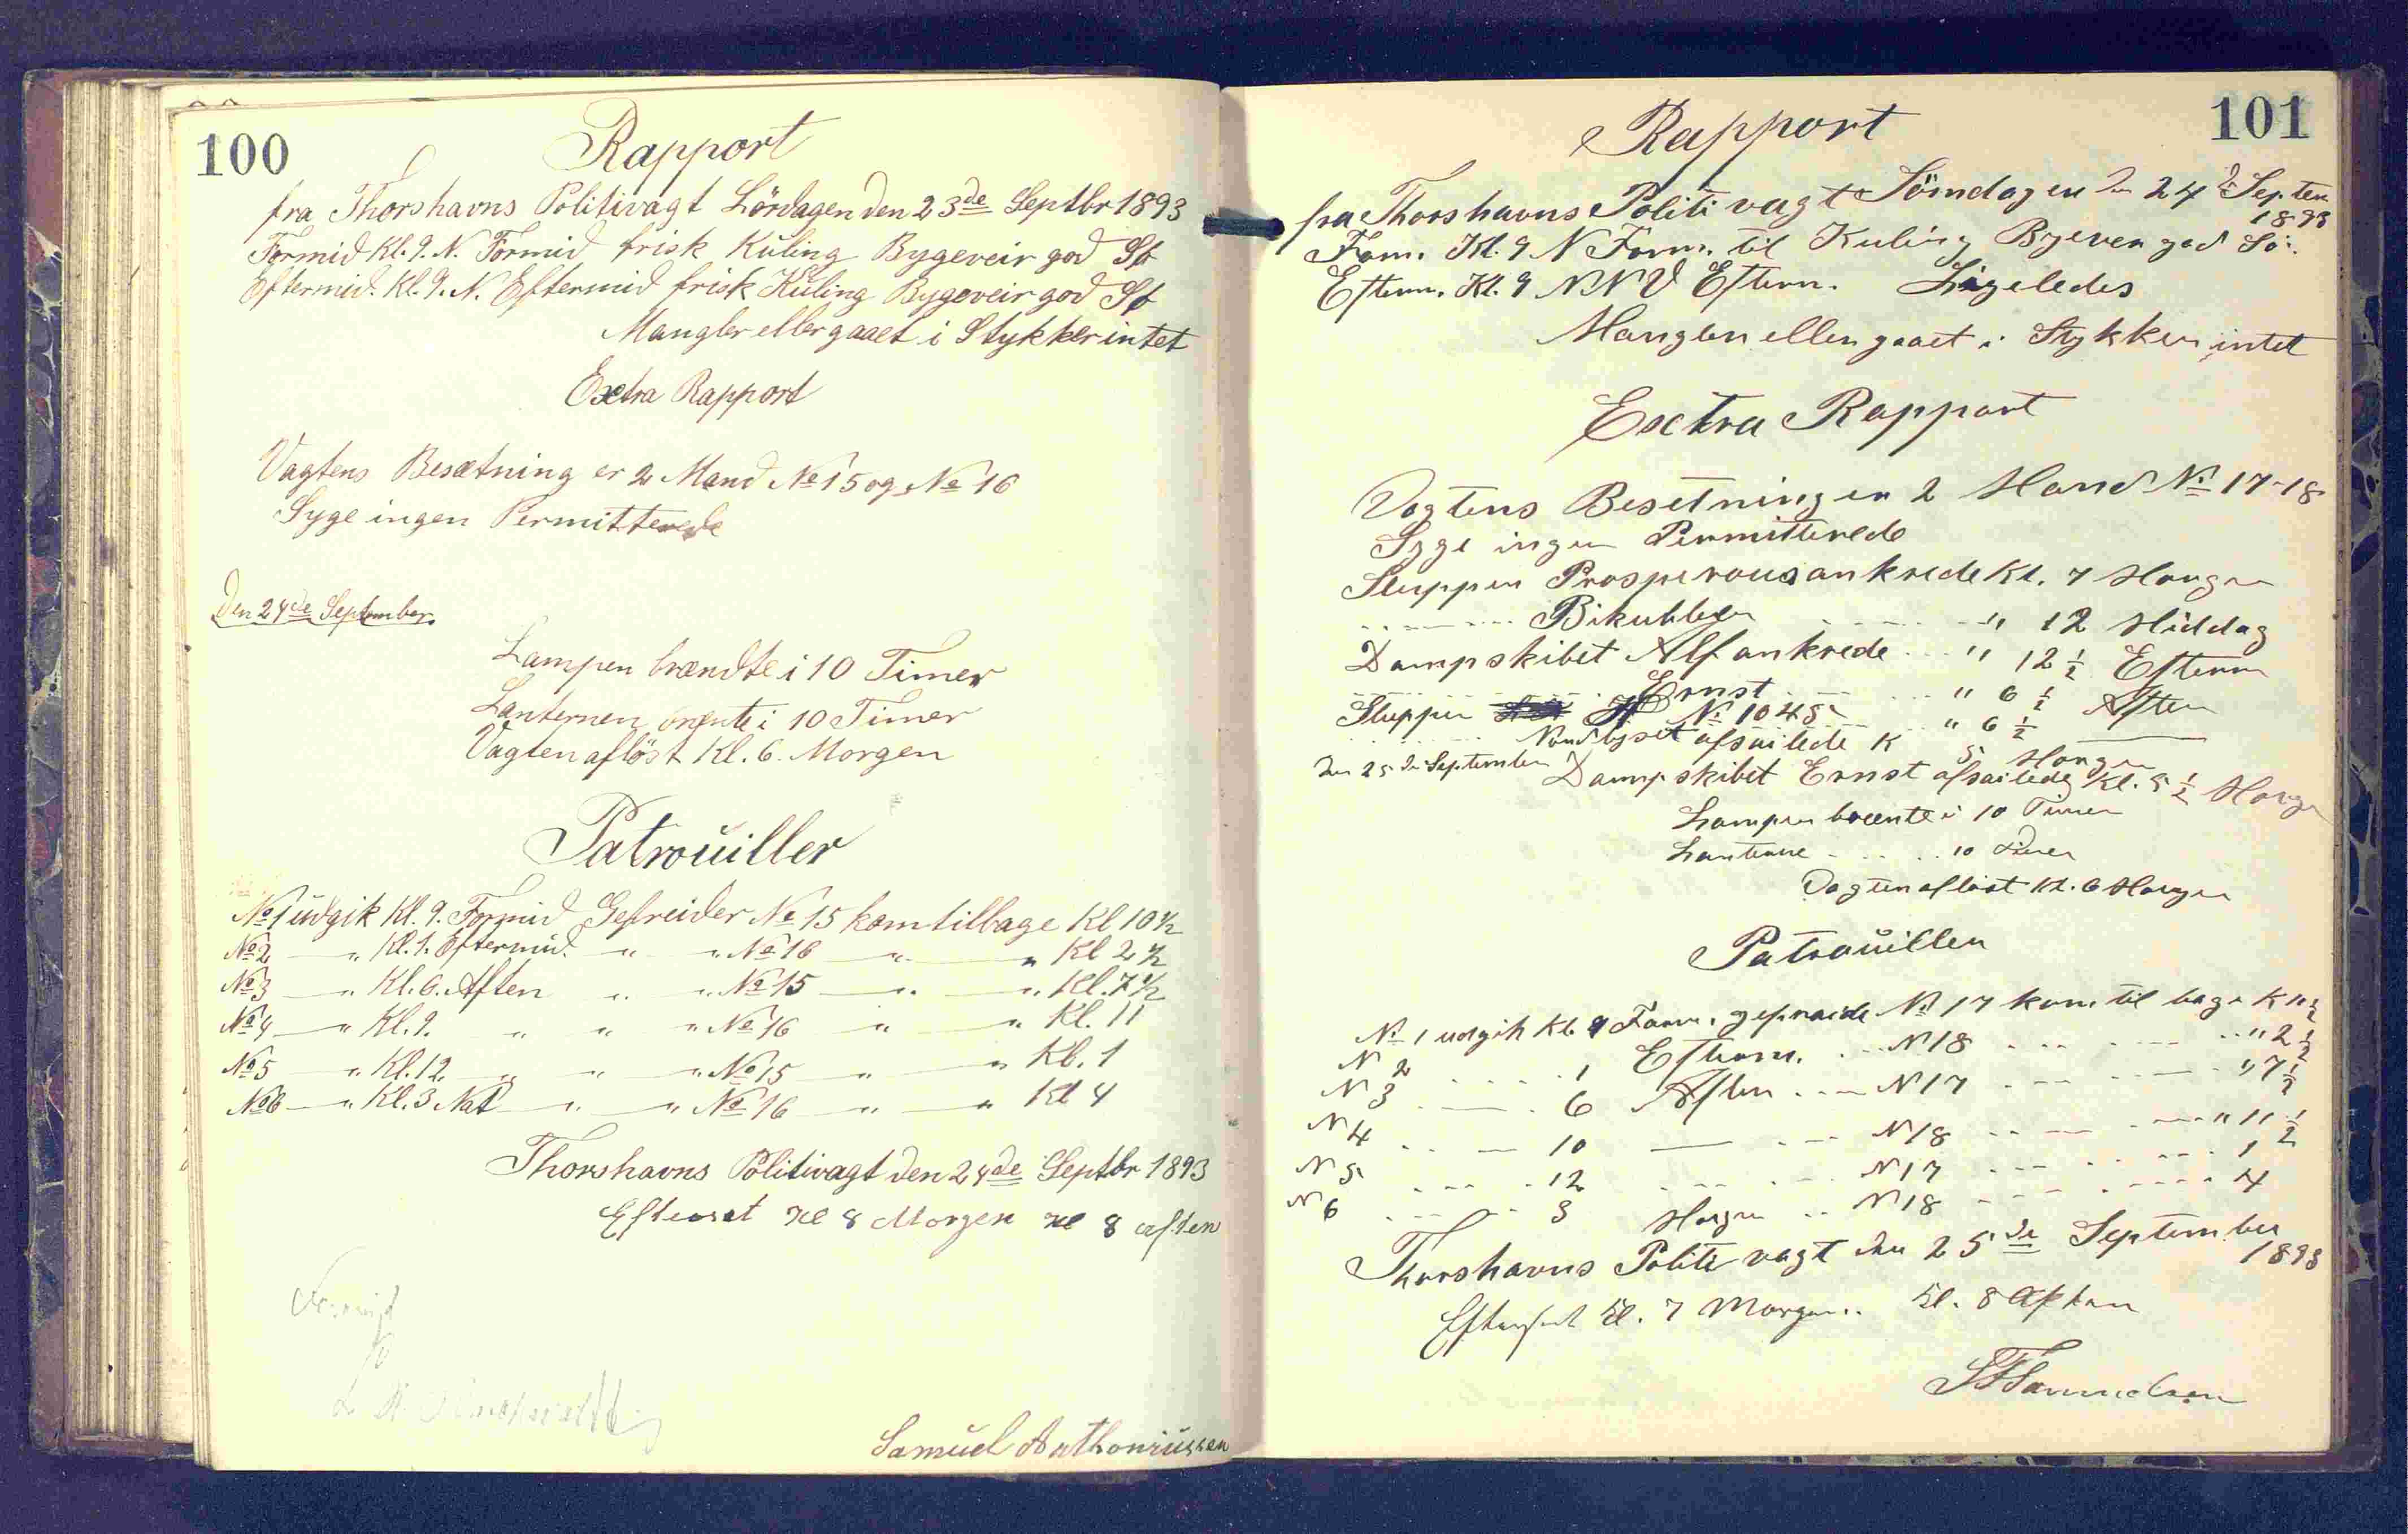 100
Rapport
fra Thorshavns Politivagt Lördagen den 23de Septbr 1893
Formid Kl. 9. N. Formid frisk Kuling Bygeveir god Sö
Eftermid. Kl. 9. N. Eftermid frisk Kuling Bygeveir god Sö
Mangler eller gaaet i Stykker intet
Exstra Rapport
Vagtens Besætning er 2 Mand No 15 og No 16
Syge ingen Permitterede
Den 24de September
Lampen brændte i 10 Timer
Lanternen brænte i 10 Timer
Vagten aflöst Kl. 6. Morgen
Patrouiller
No 1 udgik Kl. 9. Formid Gefreider No 15 kom tilbage Kl 10 1/2
No 2 — " Kl. 1. Eftermid. " " No 16 — " — " Kl 2 1/2
No 3 — " Kl. 6. Aften " " No 15 — " — " Kl. 7 1/2
No 4 — " Kl. 9. " " " No 16 " — " Kl. 11
No 5 " Kl. 12 " " " No 15 " — " Kl. 1
No 6 — " Kl. 3 Nat — " — " No 16 — " — " Kl 4
Thorshavns Politivagt den 24de Septbr 1893
Efterset Kl 8 Morgen Kl 8 aften
Samuel Anthoniussen
101
Rapport
fra Thorshavns Politi vagt Söndagen den 24de Septem
1893
Form. Kl. 9 N Form. til Kuling Bygever god Sö.
Efterm. Kl. 9 NNV Efterm. Ligeledes
Mangler eller gaaet i Stykker intet
Exctra Rapport
Vagtens Besetning er 2 Mand No 17-18
Syge ingen Permitterede
Sluppen Prosperous ankrede Kl. 7 Morgen
— Bikubben — " 12 Middag
Dampskibet Alf ankrede " 12 1/2 Efterm
— Ernst — " 6 1/2 Aften
Sluppen No 1045 — " 6 1/2 —
Nordlyset afsailede K 5 Morgen
Den 25de September Dampskibet Ernst afsailede Kl. 5 1/2 Morgen
Lampen brænte i 10 Timer
Lanterne — 10 Timer
Vagten aflöst Kl. 6 Morgen
Patrouiller
No 1 udgik Kl. 9 Form. gefraide No 17 kom til bage K 10 1/2
N 2 — 1 Efterm. — N 18 — " 2 1/2
N 3 — 6 Aften — N 17 — " 7 1/2
N 4 — 10 — N 18 — " 11 1/2
N 5 — 12 — N 17 — 1
N 6 — 3 Morgen — N 18 — 4
Thorshavns Politi vagt den 25de September
1893
Efterset Kl. 7 Morgen. Kl. 8 Aften
Samuelsen